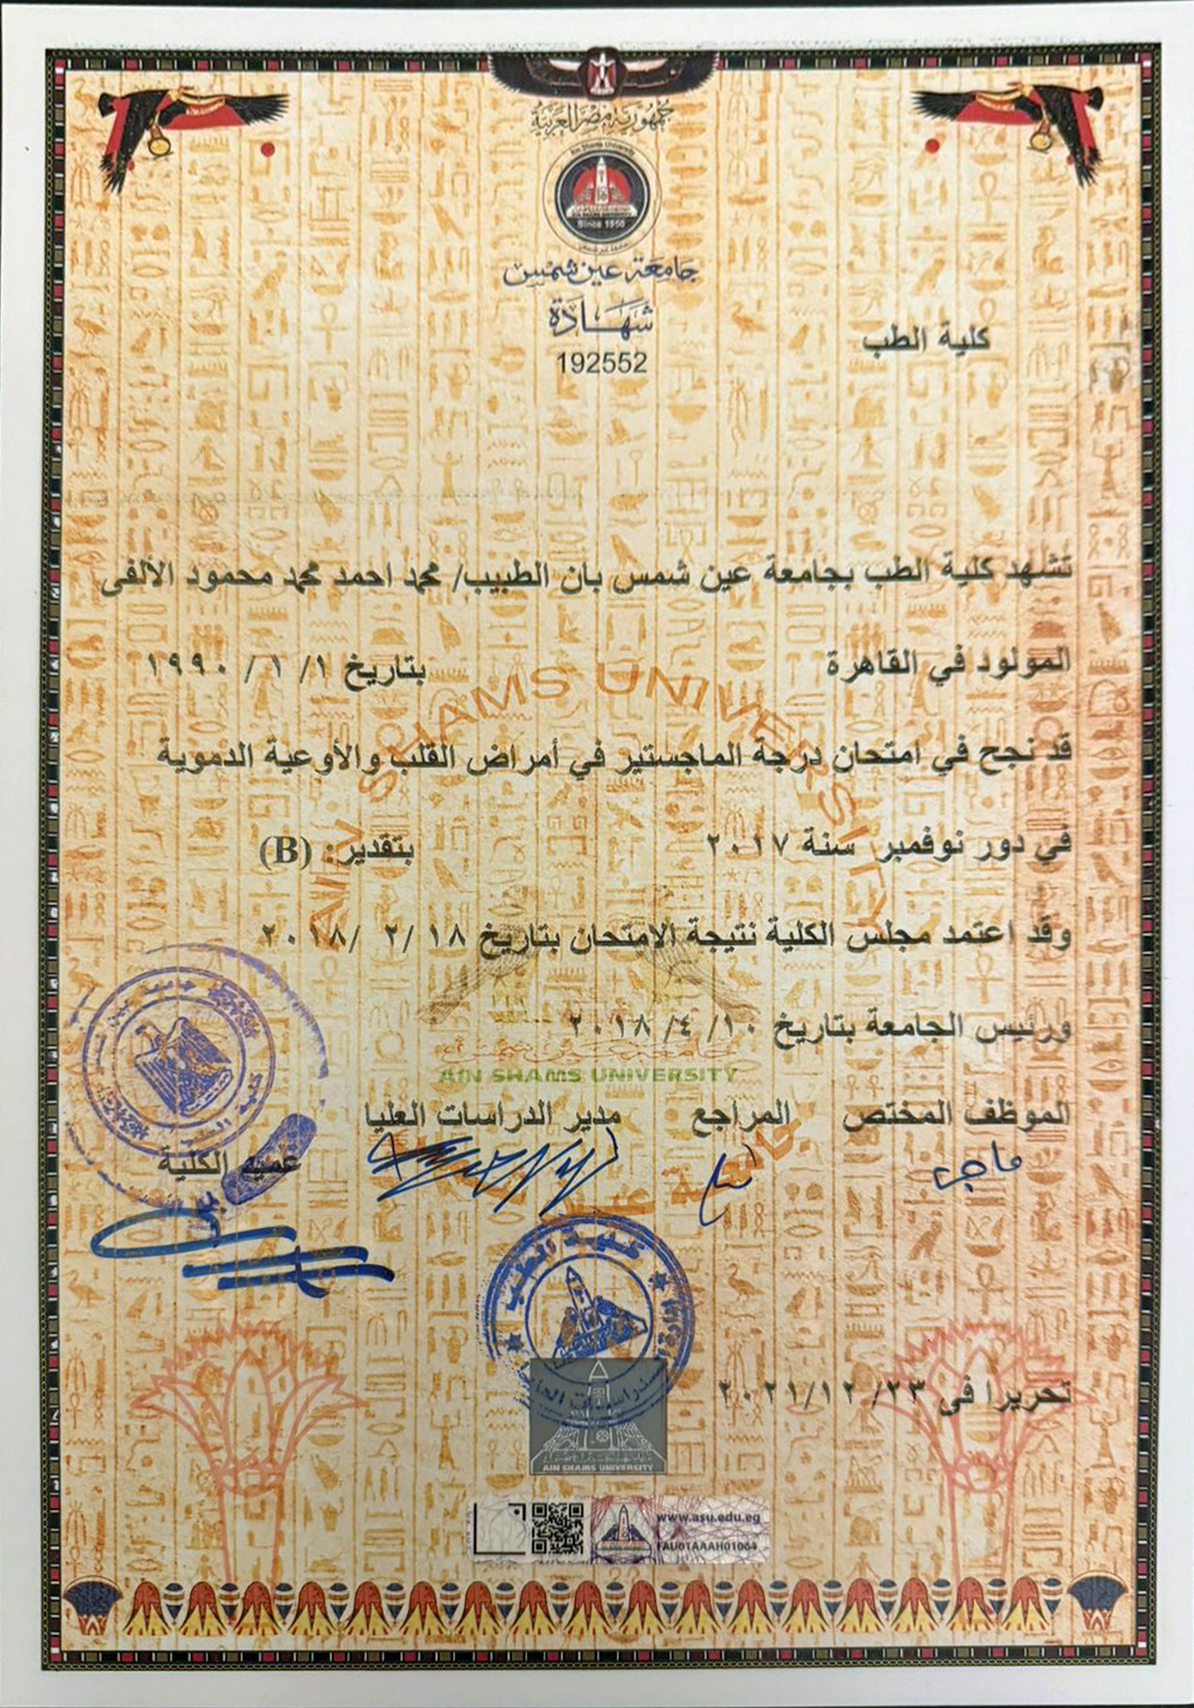 جمهورية مصر العربية
Ain Shams University
AIN SHAMS UNIVERSITY
Since 1950
جامعة عين شمس
شهادة
192552
كلية الطب
تشهد كلية الطب بجامعة عين شمس بان الطبيب/ محمد احمد محمد محمود الألفى
المولود في القاهرة بتاريخ ١/ ١/ ١٩٩٠
قد نجح في امتحان درجة الماجستير في أمراض القلب والأوعية الدموية
في دور نوفمبر سنة ٢٠١٧ بتقدير: (B)
وقد اعتمد مجلس الكلية نتيجة الامتحان بتاريخ ١٨ /٢ /٢٠١٨
ورئيس الجامعة بتاريخ ١٠/ ٤/ ٢٠١٨
AIN SHAMS UNIVERSITY
جامعة عين شمس
AIN SHAMS UNIVERSITY
الموظف المختص المراجع مدير الدراسات العليا
عميد الكلية
كلية الطب
تحريرا فى ٢٣/ ٢٠٢١/١٢
AIN SHAMS UNIVERSITY
www.asu.edu.eg